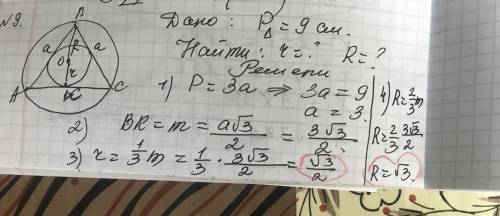 №9.
Дано: P△ = 9 см.
Найти: r = ? R = ?
Решени
1) P = 3a ⇒ 3a = 9
a = 3.
2) BK = m = a√3/2 = 3√3/2.
3) r = 1/3 m = 1/3 · 3√3/2 = √3/2
4) R = 2/3 m
R = 2/3 3√3/2
R = √3.
B
a
a
R
O
r
A
C